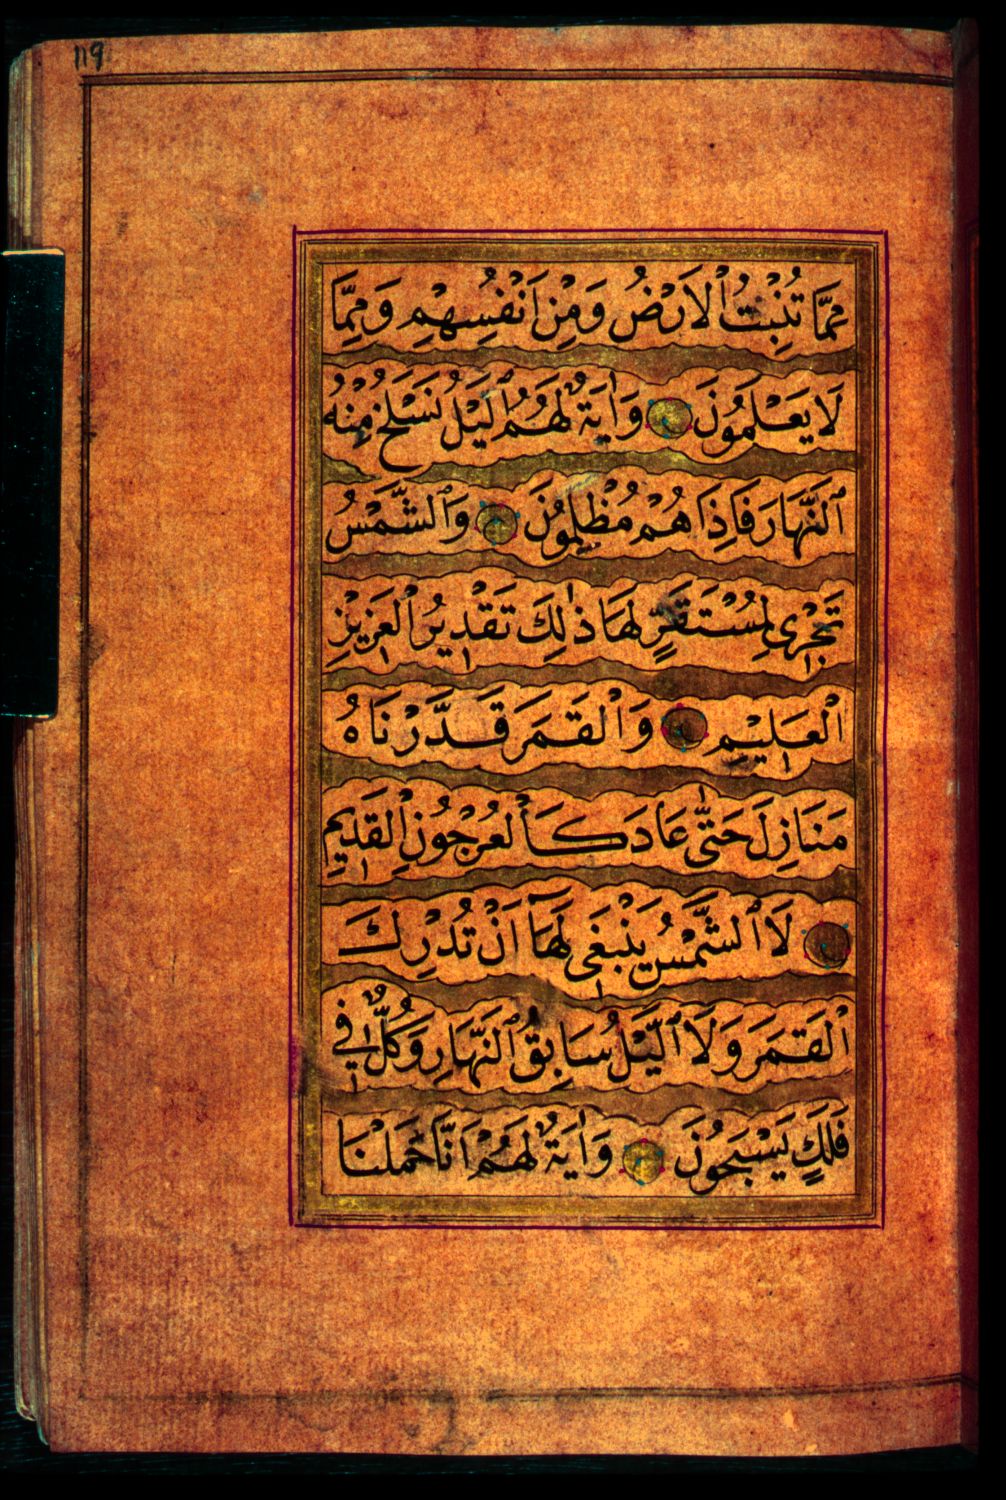 119
مِمَّا تُنْبِتُ ٱلْاَرْضُ وَمِنْ اَنْفُسِهِمْ وَمِمَّا
لَا يَعْلَمُونَ وَاٰيَةٌ لَهُمُ ٱلَّيْلُ نَسْلَخُ مِنْهُ
ٱلنَّهَارَ فَاِذَا هُمْ مُظْلِمُونَ وَٱلشَّمْسُ
تَجْرِى لِمُسْتَقَرٍّ لَهَا ذٰلِكَ تَقْدِيرُ ٱلْعَزِيزِ
ٱلْعَلِيمِ وَٱلْقَمَرَ قَدَّرْنَاهُ
مَنَازِلَ حَتّٰى عَادَ كَٱلْعُرْجُونِ ٱلْقَدِيمِ
لَا ٱلشَّمْسُ يَنْبَغِى لَهَآ اَنْ تُدْرِكَ
ٱلْقَمَرَ وَلَا ٱلَّيْلُ سَابِقُ ٱلنَّهَارِ وَكُلٌّ فِى
فَلَكٍ يَسْبَحُونَ وَاٰيَةٌ لَهُمْ اَنَّا حَمَلْنَا